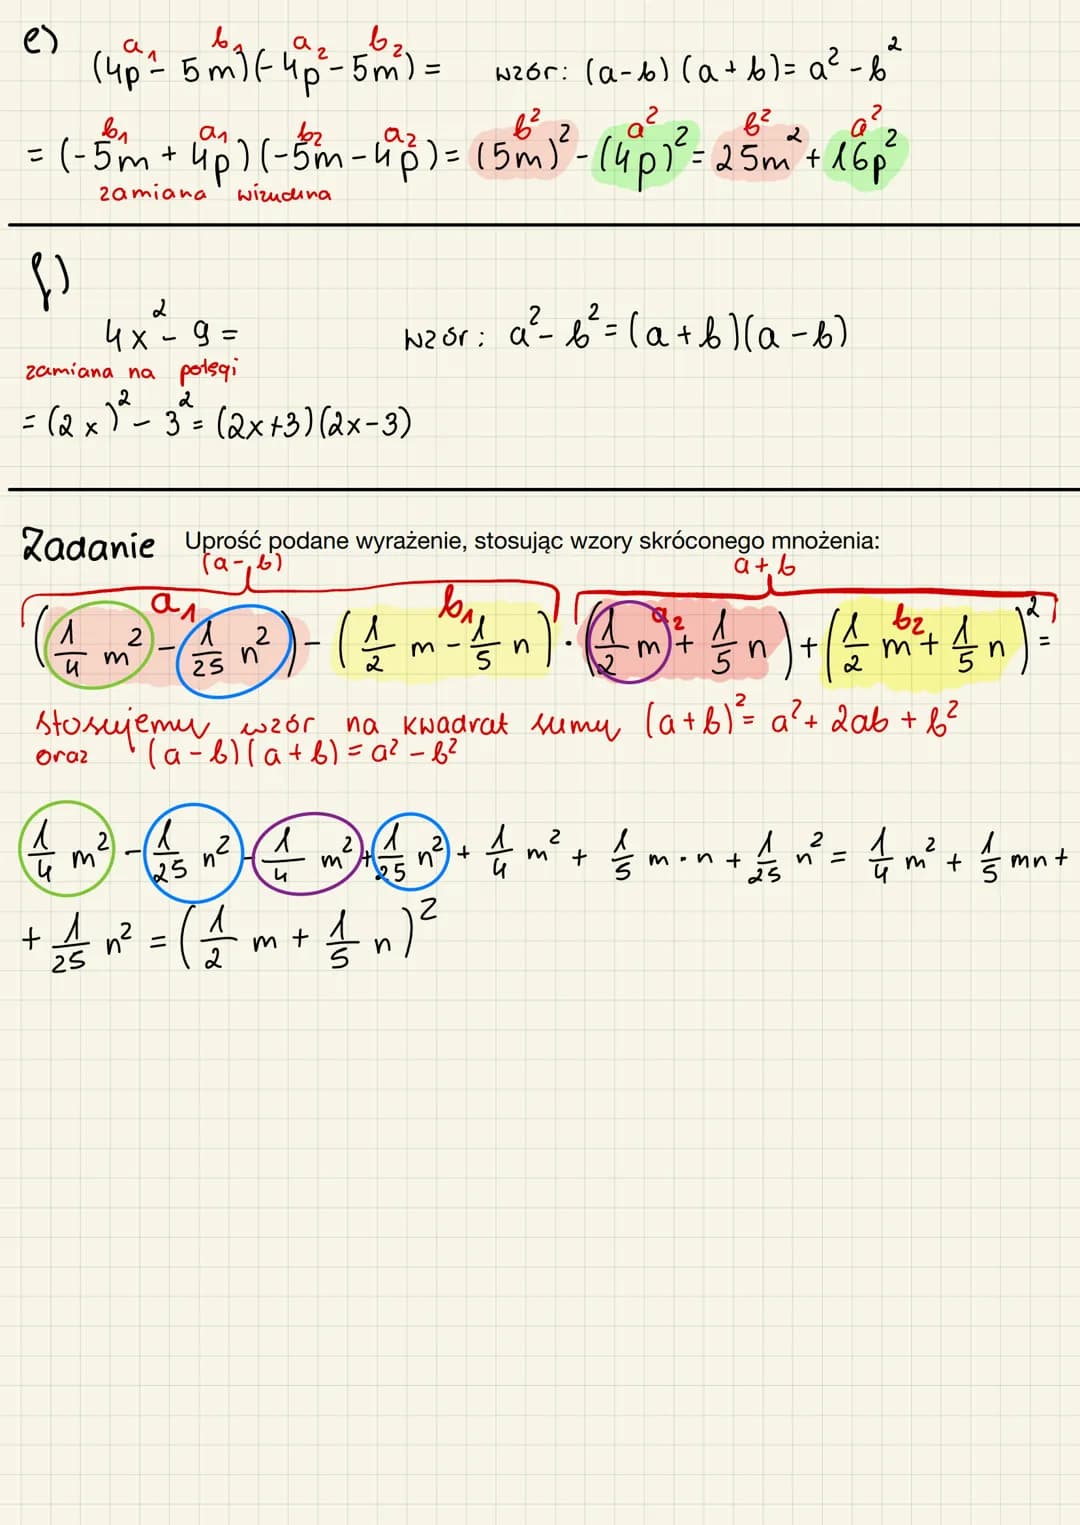 e)
a₁ b₁ a₂ b₂
(4p - 5m)(-4p - 5m) = wzór: (a-b)(a+b) = a² - b²
b₁ a₁ b₂ a₂ b² a² b² a²
= (-5m + 4p)(-5m - 4p) = (5m)² - (4p)² = 25m² + 16p²
zamiana
f)
4x² - 9 = wzór: a² - b² = (a+b)(a-b)
zamiana na potęgi
= (2x)² - 3² = (2x+3)(2x-3)
Zadanie Uprość podane wyrażenie, stosując wzory skróconego mnożenia:
(a-b) a+b
a₁ b₁ a₂ b₂
(1/4 m² - 1/25 n²) - (1/2 m - 1/5 n) · (1/2 m + 1/5 n) + (1/2 m + 1/5 n)² =
Stosujemy wzór na kwadrat sumy (a+b)² = a² + 2ab + b²
oraz (a-b)(a+b) = a² - b²
1/4 m² - 1/25 n² - 1/4 m² + 1/25 n² + 1/4 m² + 1/5 m·n + 1/25 n² = 1/4 m² + 1/5 mn +
+ 1/25 n² = (1/2 m + 1/5 n)²